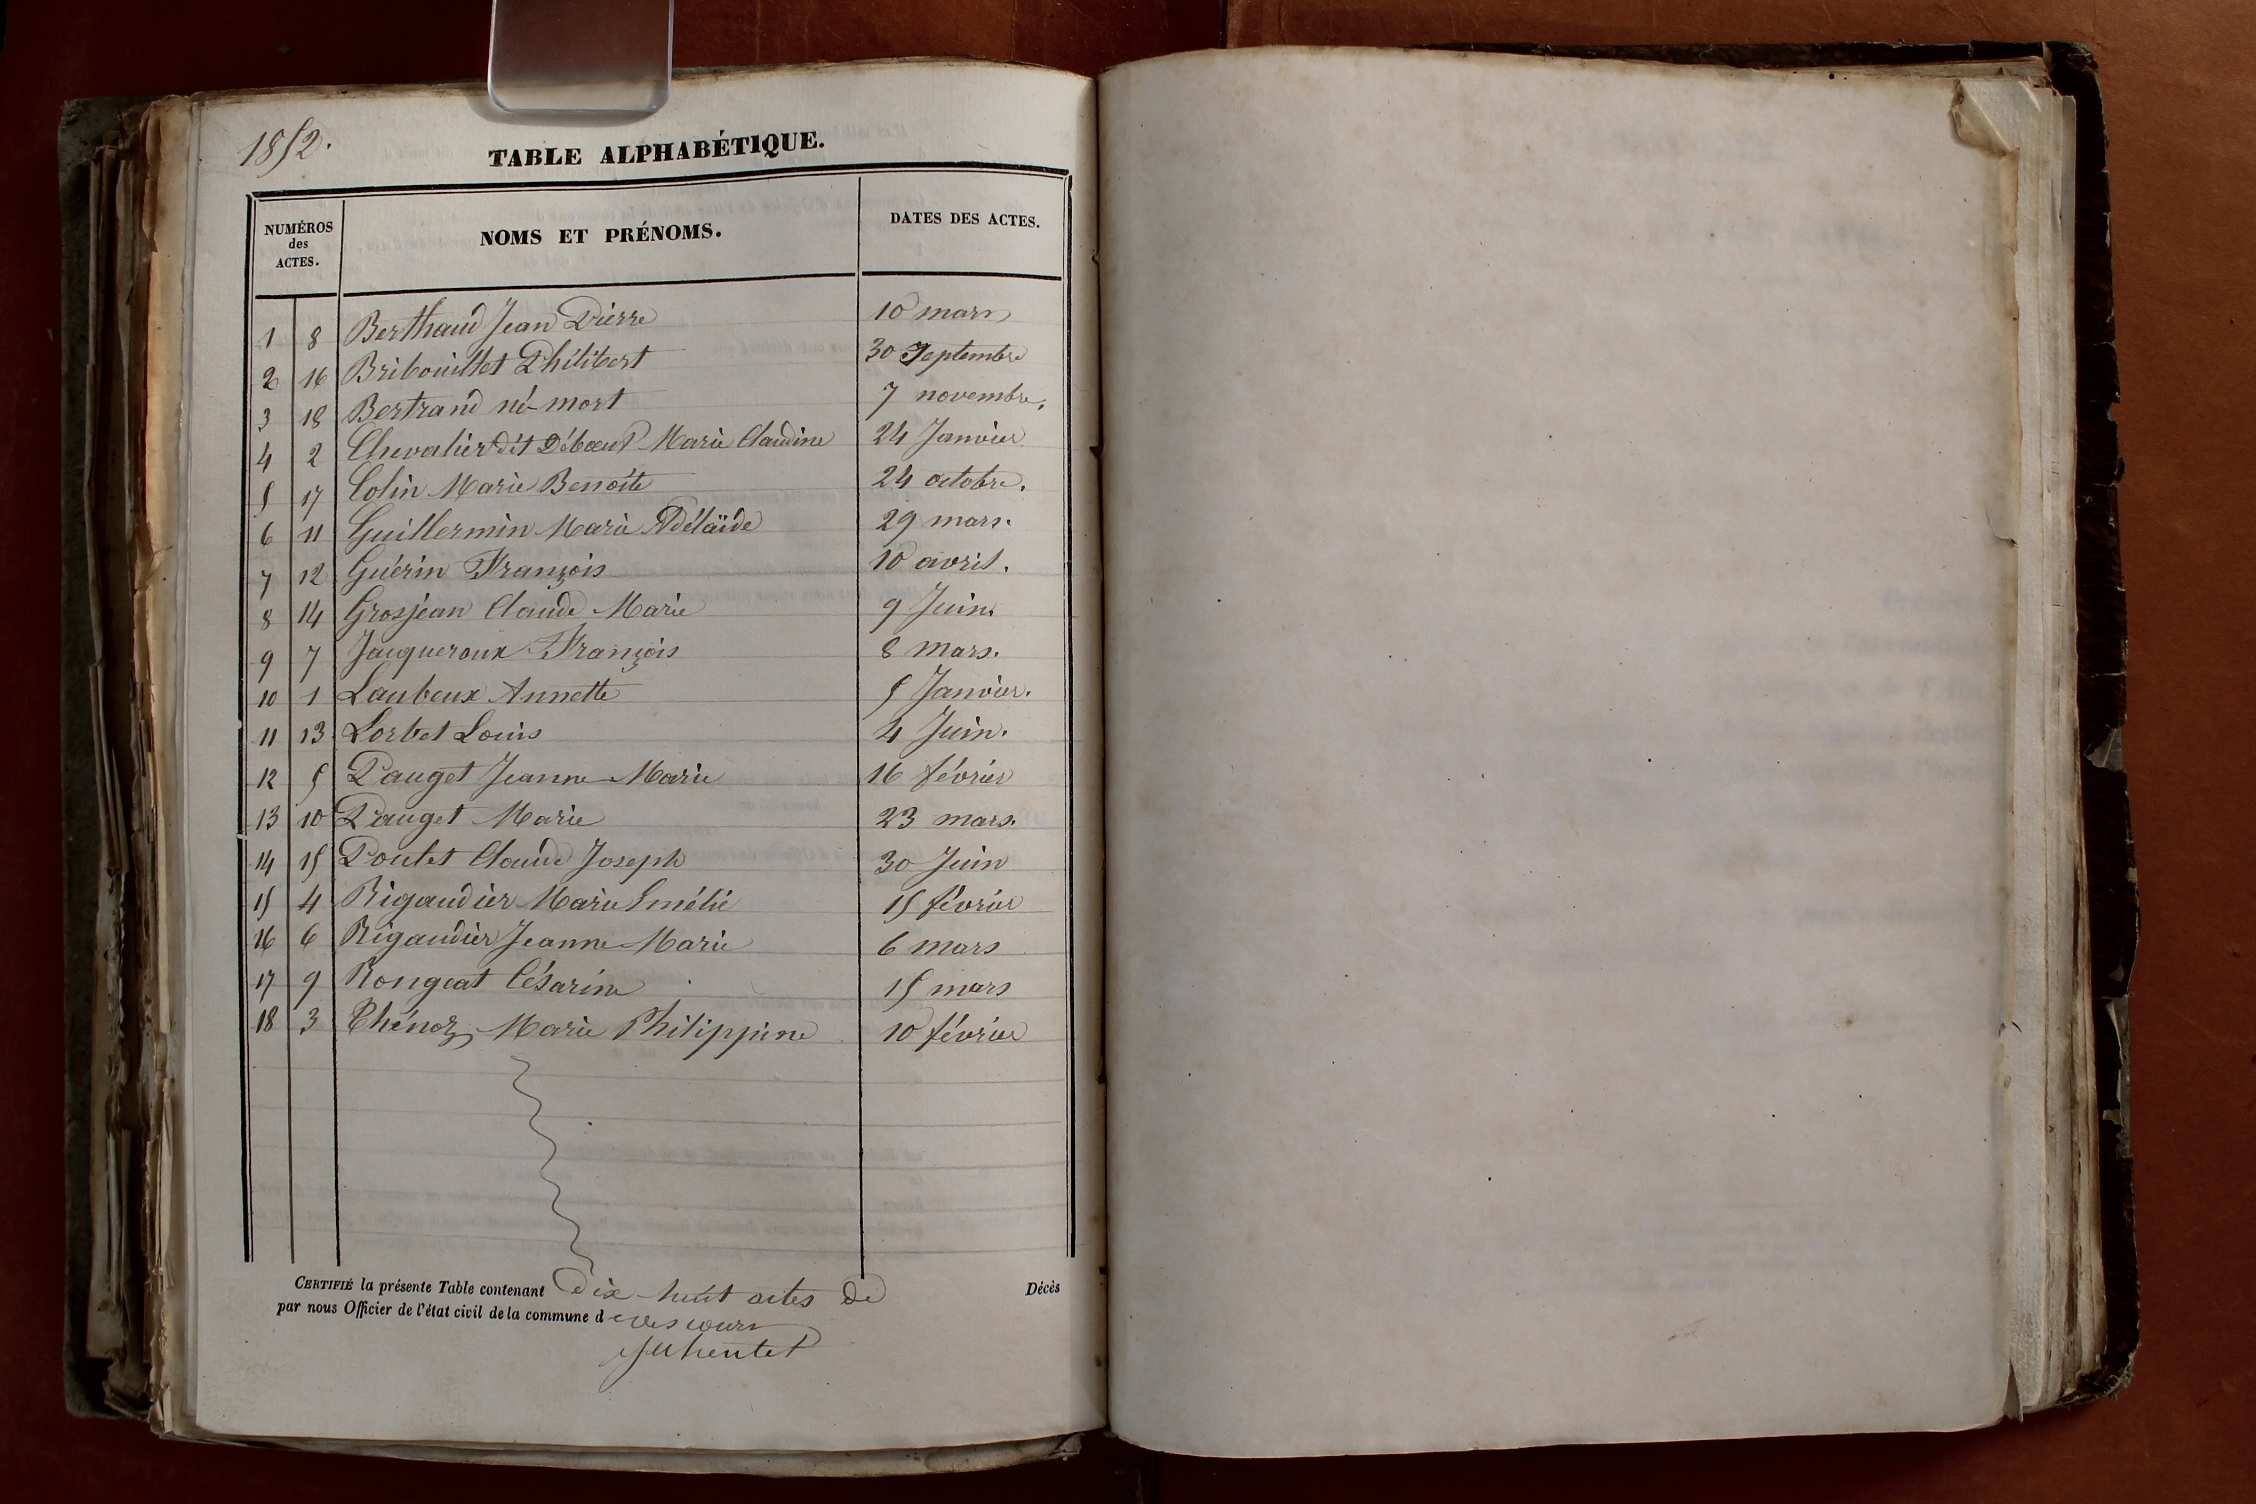 1852.
TABLE ALPHABÉTIQUE.
NUMÉROS des ACTES. NOMS ET PRÉNOMS. DATES DES ACTES.
1 8 Berthaud Jean Pierre 10 mars
2 16 Bribouillet Philibert 30 Septembre
3 18 Bertrand né-mort 7 novembre.
4 2 Chevalier dit Débœuf Marie Claudine 24 Janvier
5 17 Colin Marie Benoite 24 octobre.
6 11 Guillermin Marie Adélaïde 29 mars.
7 12 Guérin François 10 avril.
8 14 Grosjean Claude Marie 9 Juin.
9 7 Jauqueroux François 8 mars.
10 1 Laubeux Annette 5 Janvier.
11 13 Lorbet Louis 4 Juin.
12 5 Pauget Jeanne Marie 16 février
13 10 Pauget Marie 23 mars.
14 15 Poulet Claude Joseph 30 Juin
15 4 Rigaudier Marie Emélie 15 février
16 6 Rigaudier Jeanne Marie 6 mars
17 9 Rongeat Césarine 15 mars
18 3 Thénoz Marie Philippine 10 février
CERTIFIÉ la présente Table contenant Dix huit actes de Décès
par nous Officier de l'état civil de la commune d e vescours